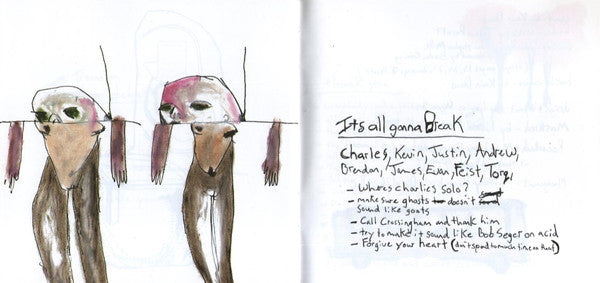 Its all gonna Break
Charles, Kevin, Justin, Andrew,
Brendan, James, Evan, Feist, Torq,
- Wheres charlies solo?
- make sure ghosts doesn't
sound like goats
- Call Crossingham and thank him
- try to make it sound like Bob Seger on acid
- Forgive your heart (don't spend to much time on that)